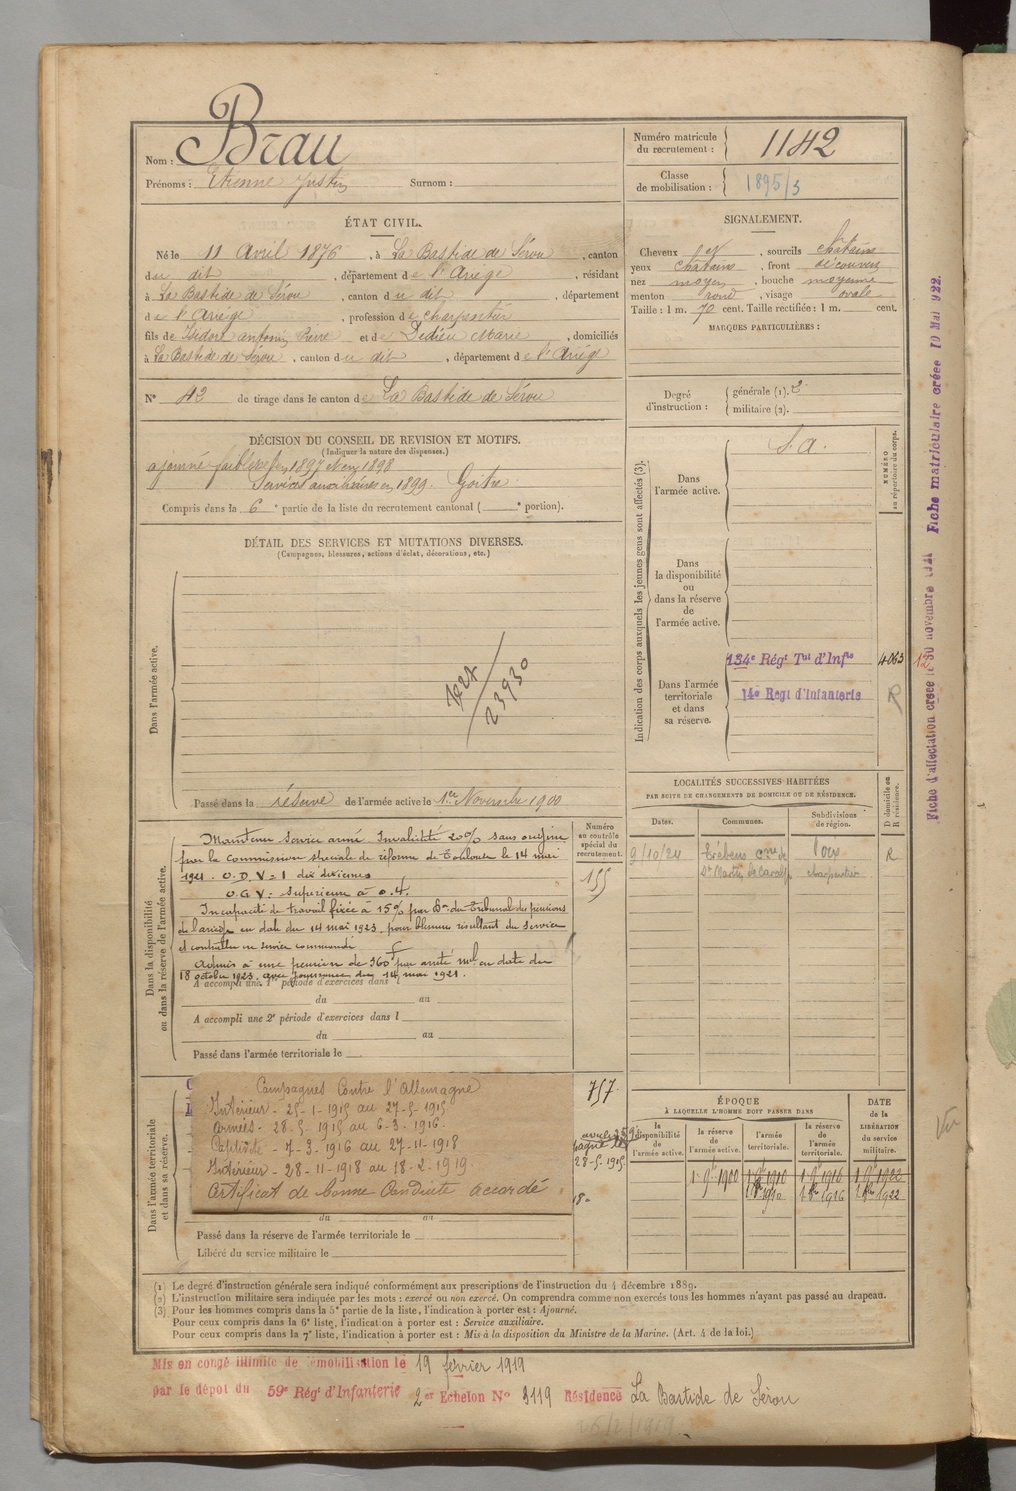 Nom : Brau
Prénoms : Etienne Justin Surnom :
Numéro matricule du recrutement : 1142
Classe de mobilisation : 1895/3
ÉTAT CIVIL.
Né le 11 Avril 1876, à La Bastide de Sérou, canton
du dit, département de l'Ariège, résidant
à La Bastide de Sérou, canton du dit, département
de l'Ariège, profession de charpentier
fils de Isidore antonin Pierre et de Dedieu Marie, domiciliés
à La Bastide de Sérou, canton du dit, département de l'Ariège
N° 42 de tirage dans le canton de La Bastide de Sérou
SIGNALEMENT.
Cheveux et, sourcils châtains
yeux châtains, front découvert
nez moyen, bouche moyenne
menton rond, visage ovale
Taille : 1 m. 70 cent. Taille rectifiée : 1 m. cent.
MARQUES PARTICULIÈRES :
Degré d'instruction : générale (1). 2
militaire (2).
DÉCISION DU CONSEIL DE REVISION ET MOTIFS.
(Indiquer la nature des dispenses.)
ajourné faiblesse en 1897 et en 1898
Services auxiliaires en 1899. Goitre.
Compris dans la 6e partie de la liste du recrutement cantonal ( e portion).
DÉTAIL DES SERVICES ET MUTATIONS DIVERSES.
(Campagnes, blessures, actions d'éclat, décorations, etc.)
Dans l'armée active.
23930
Passé dans la réserve de l'armée active le 1er Novembre 1900
Indication des corps auxquels les jeunes gens sont affectés (3).
NUMÉRO au répertoire du corps.
Dans l'armée active.
S. A.
Dans la disponibilité ou dans la réserve de l'armée active.
Dans l'armée territoriale et dans sa réserve.
134e Régt Tal d'Infie 4063
14e Régt d'Infanterie R
Fiche d'affectation créée le 30 novembre 1921 Fiche matriculaire créée 10 Mai 1922.
12
Dans la disponibilité ou dans la réserve de l'armée active.
Maintenu service armé. Invalidité 20% sans origine
par la Commission spéciale de réforme de Toulouse le 14 mai
1921. O.D.V = 1 dix dixièmes
O.G.V = Supérieur à 0.4.
Incapacité de travail fixée à 15% par Don du Tribunal des pensions
de l'ariège en date du 14 mai 1923, pour blessure résultant du service
et contractée en service commandé
Admis à une pension de 360f par arrêté mel en date du
18 octobre 1923, avec jouissance du 14 mai 1921.
A accompli une 1re période d'exercices dans l
du au
A accompli une 2e période d'exercices dans l
du au
Passé dans l'armée territoriale le
Numéro au contrôle spécial du recrutement.
155
LOCALITÉS SUCCESSIVES HABITÉES
PAR SUITE DE CHANGEMENTS DE DOMICILE OU DE RÉSIDENCE.
Dates. Communes. Subdivisions de région. D domicile ou R résidence.
9/10/24 cne de Foix R
St Martin de Caralp charpentier
Dans l'armée territoriale et dans sa réserve.
Campagnes Contre l'Allemagne
Intérieur - 25-1-1915 au 27-5-1915
Armées - 28-5-1915 au 6-3-1916 -
Captivité - 7-3-1916 au 27-11-1918
Intérieur - 28-11-1918 au 18-2-1919
Certificat de bonne Conduite accordé
757
28-5-1915
18-
du au
Passé dans la réserve de l'armée territoriale le
Libéré du service militaire le
ÉPOQUE
À LAQUELLE L'HOMME DOIT PASSER DANS
la disponibilité de l'armée active. la réserve de l'armée active. l'armée territoriale. la réserve de l'armée territoriale. DATE de la LIBÉRATION du service militaire.
1 9bre 1900 1 9bre 1910 1 9bre 1916 1 9bre 1922
1 8bre 1910 1 8bre 1916 1 8bre 1922
(1) Le degré d'instruction générale sera indiqué conformément aux prescriptions de l'instruction du 4 décembre 1889.
(2) L'instruction militaire sera indiquée par les mots : exercé ou non exercé. On comprendra comme non exercés tous les hommes n'ayant pas passé au drapeau.
(3) Pour les hommes compris dans la 5e partie de la liste, l'indication à porter est : Ajourné.
Pour ceux compris dans la 6e liste, l'indication à porter est : Service auxiliaire.
Pour ceux compris dans la 7e liste, l'indication à porter est : Mis à la disposition du Ministre de la Marine. (Art. 4 de la loi.)
Mis en congé illimité de démobilisation le 19 février 1919
par le dépôt du 59e Régt d'Infanterie 2e Echelon N° 3119 Résidence La Bastide de Sérou